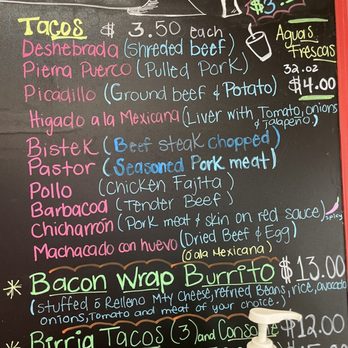 $3.
Tacos $ 3.50 each
Aguas Frescas
32.oz
$4.00
Deshebrada (shreded beef)
Pierna Puerco (Pulled Pork)
Picadillo (Ground beef & Potato)
Higado a la Mexicana (Liver with Tomato, onions & Jalapeño)
Bistek (Beef steak chopped)
Pastor (Seasoned Pork meat)
Pollo (Chicken Fajita)
Barbacoa (Tender Beef)
Chicharrón (Pork meat & skin on red sauce) spicy
Machacado con huevo (Dried Beef & Egg)
(ó a la Mexicana)
* Bacon Wrap Burrito $13.00
(stuffed ó Relleno Mty Cheese, refried Beans, rice, avocado
onions, Tomato and meat of your choice.)
* Birria Tacos (3) and Consomé $12.00